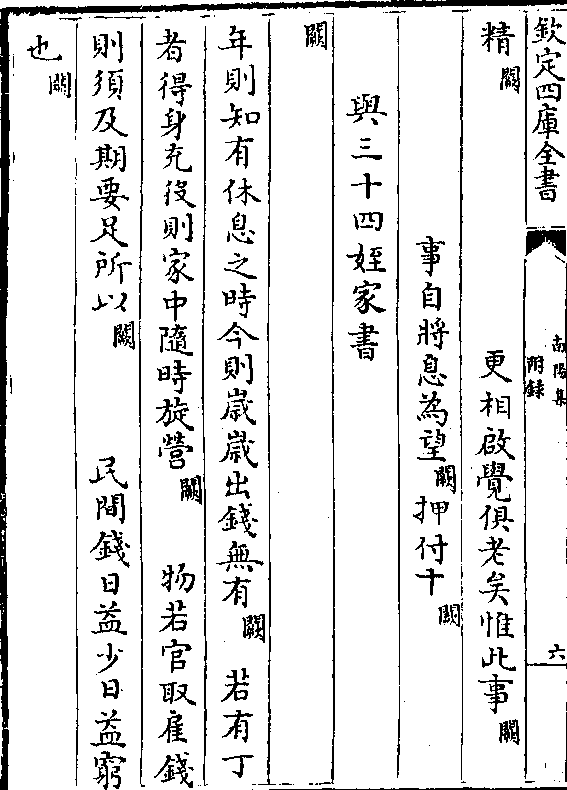 欽定四庫全書
南陽集
附録
六
精闕 更相啟覺俱老矣惟此事闕
事自將息為望闕押付十闕
與三十四姪家書
闕
年則知有休息之時今則歲歲出錢無有闕 若有丁
者得身充役則家中隨時旋營闕 物若官取雇錢
則須及期要足所以闕 民間錢日益少日益窮
也闕